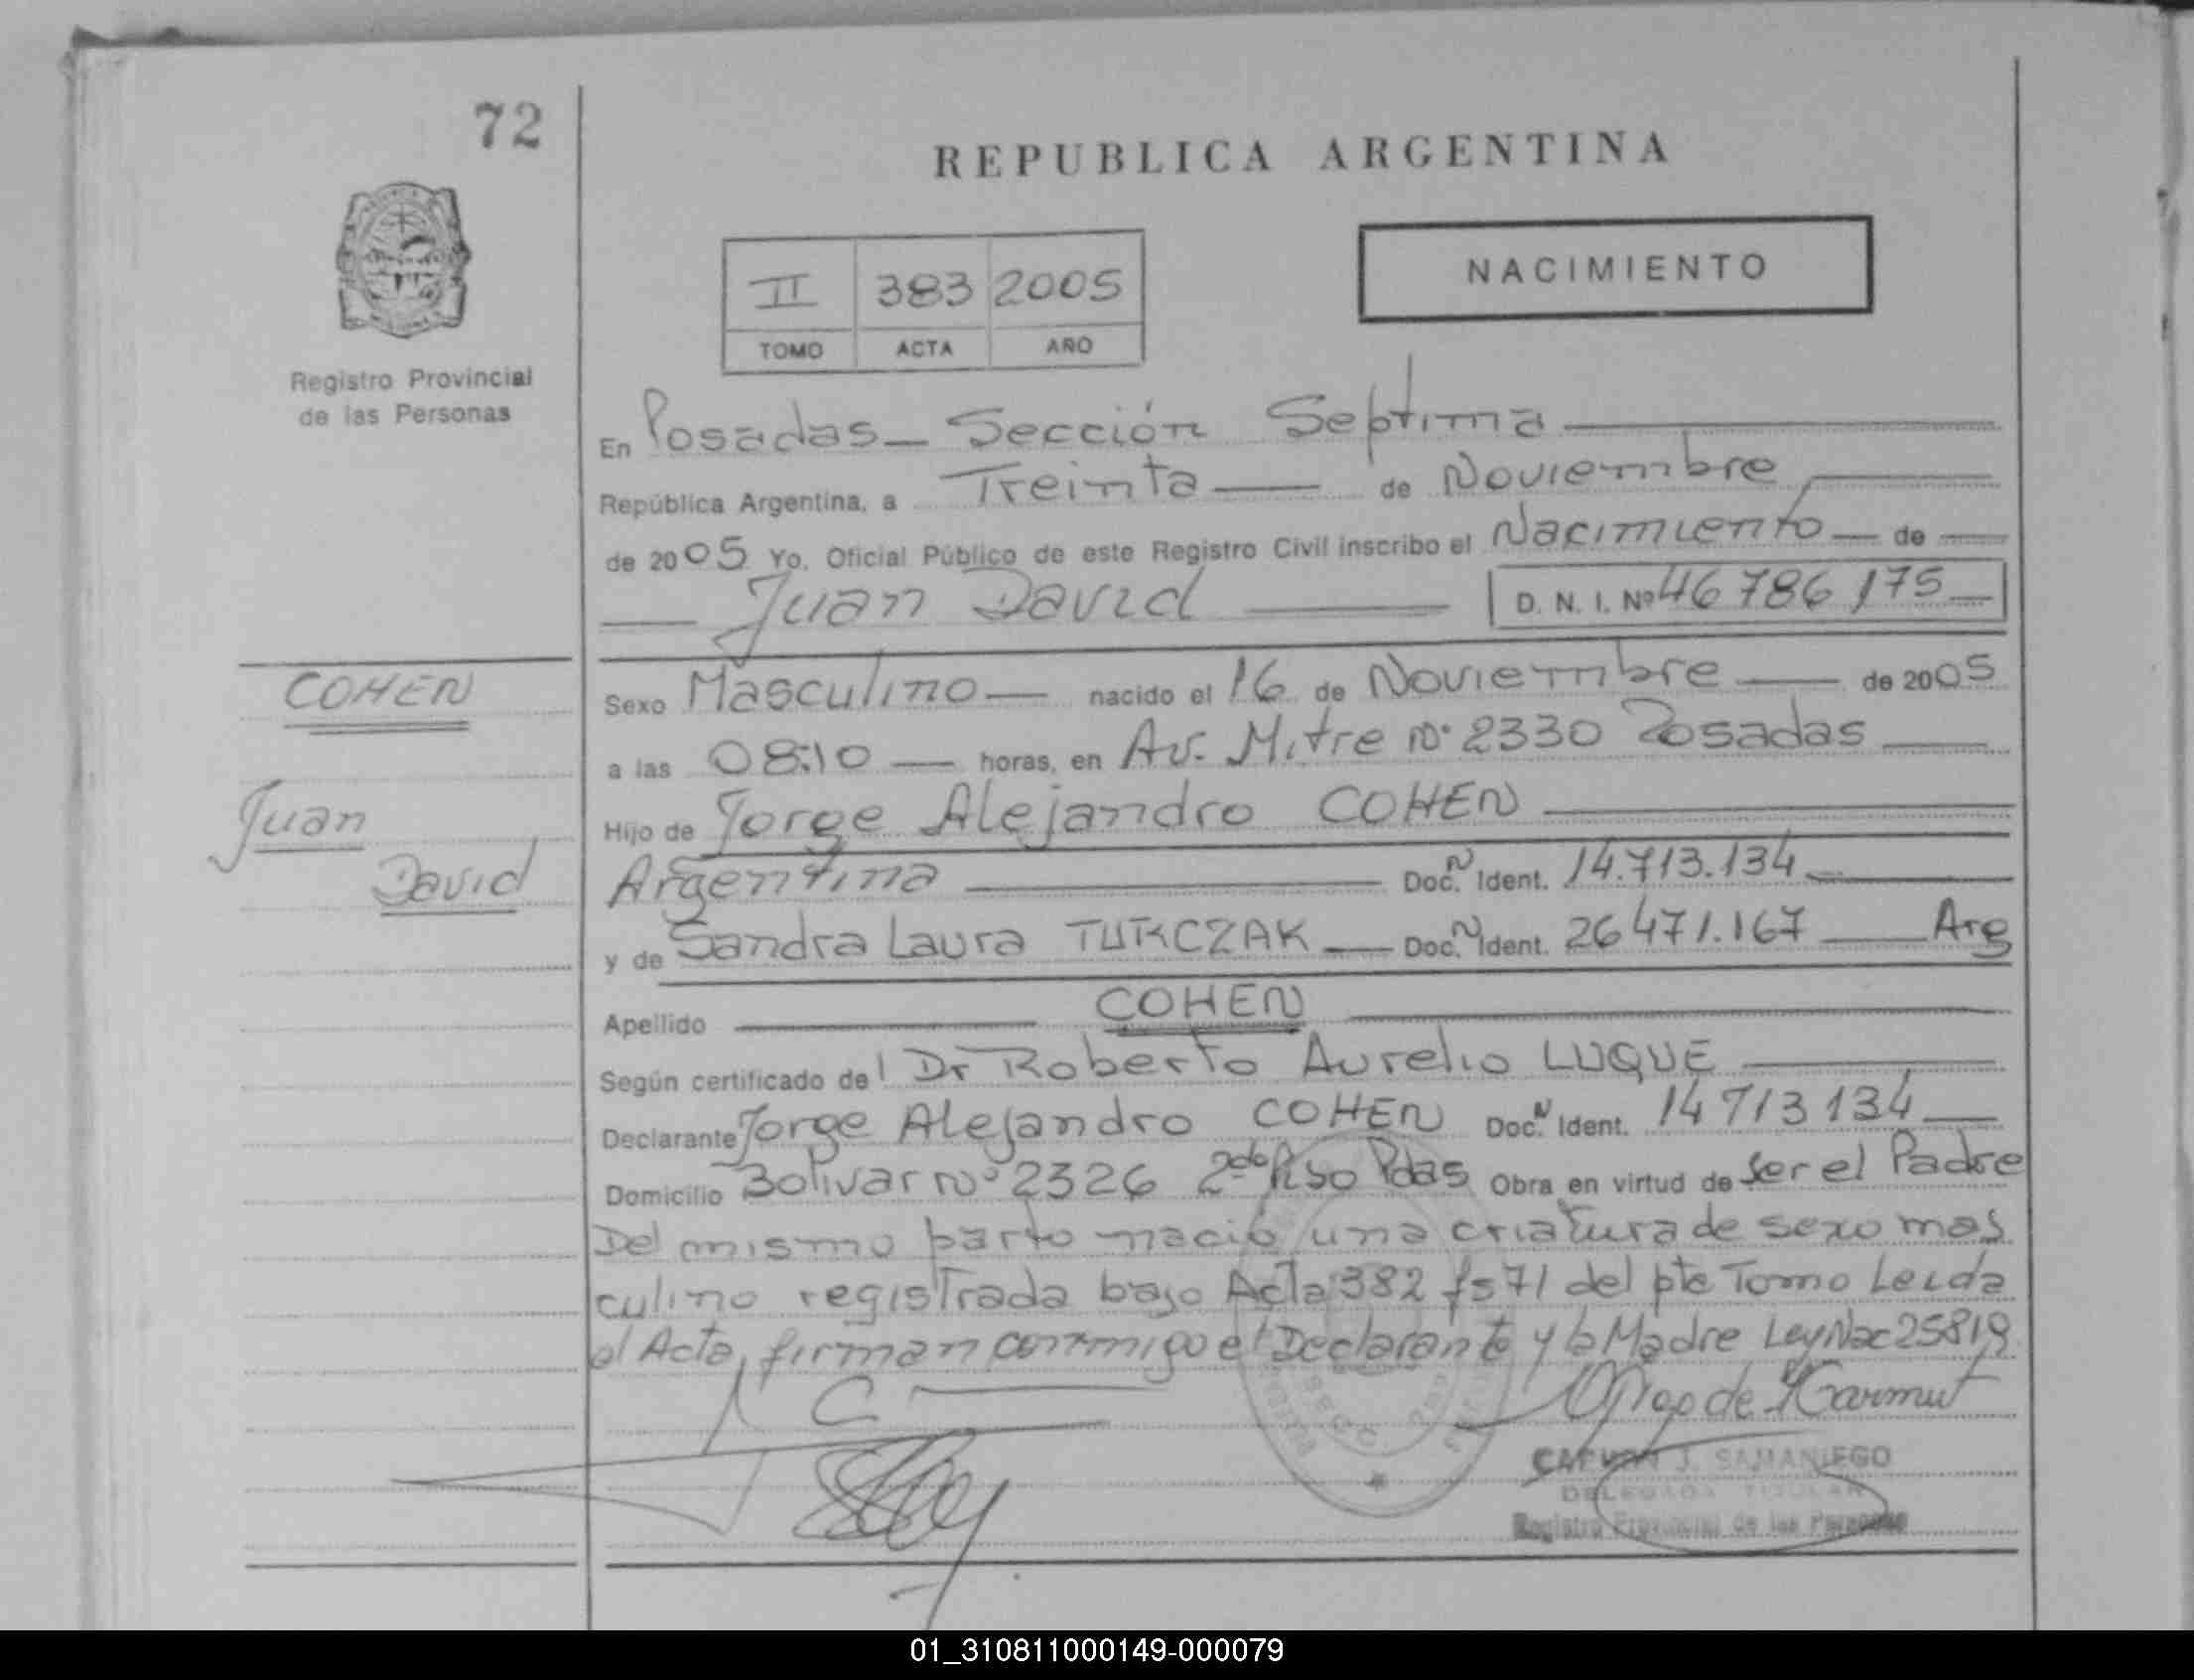 72
REPUBLICA ARGENTINA
II 383 2005
TOMO ACTA AÑO
NACIMIENTO
Registro Provincial
de las Personas
En Posadas - Sección Septima
República Argentina, a Treinta de Noviembre
de 2005 Yo, Oficial Público de este Registro Civil inscribo el Nacimiento de
Juan David D. N. I. Nº 46 786 175
COHEN
Juan
David
Sexo Masculino nacido el 16 de Noviembre de 2005
a las 08:10 horas, en Av. Mitre Nº 2330 Posadas
Hijo de Jorge Alejandro COHEN
Argentina Doc. N Ident. 14.713.134
y de Sandra Laura TURCZAK Doc. N Ident. 26 471.167 Arg
Apellido COHEN
Según certificado del Dr Roberto Aurelio LUQUE
Declarante Jorge Alejandro COHEN Doc. N Ident. 14 713 134
Domicilio Bolivar Nº 2326 2do Piso Pdas Obra en virtud de ser el Padre
Del mismo parto nació una criatura de sexo mas
culino registrada bajo Acta 382 fs 71 del pte Tomo Leida
el Acta, firman conmigo el Declarante y la Madre Ley Nac 25819
J. SAMANIEGO
DELEGADA TITULAR
Registro Provincial de las Personas
01_310811000149-000079